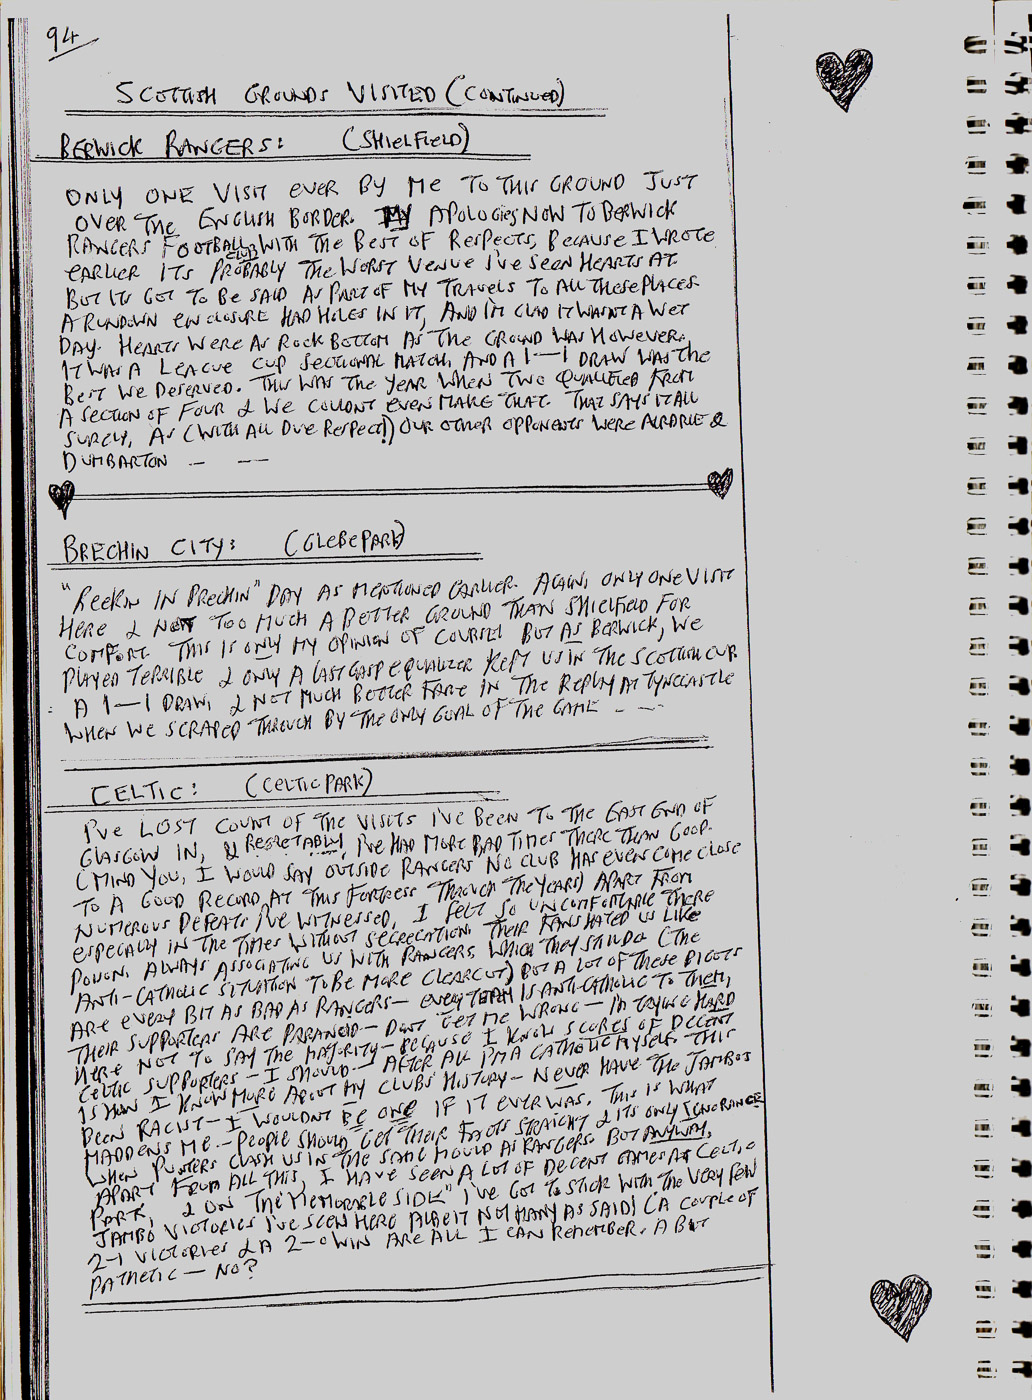 94
SCOTTISH GROUNDS VISITED (CONTINUED)
BERWICK RANGERS: (SHIELFIELD)
ONLY ONE VISIT EVER BY ME TO THIS GROUND JUST
OVER THE ENGLISH BORDER. MY APOLOGIES NOW TO BERWICK
RANGERS FOOTBALL CLUB WITH THE BEST OF RESPECTS, BECAUSE I WROTE
EARLIER ITS PROBABLY THE WORST VENUE I'VE SEEN HEARTS AT
BUT ITS GOT TO BE SAID AS PART OF MY TRAVELS TO ALL THESE PLACES
A RUNDOWN ENCLOSURE HAD HOLES IN IT, AND I'M GLAD IT WASNT A WET
DAY. HEARTS WERE AS ROCK BOTTOM AS THE GROUND WAS HOWEVER.
IT WAS A LEAGUE CUP SECTIONAL MATCH, AND A 1-1 DRAW WAS THE
BEST WE DESERVED. THIS WAS THE YEAR WHEN TWO QUALIFIED FROM
A SECTION OF FOUR & WE COULDNT EVEN MAKE THAT. THAT SAYS IT ALL
SURELY, AS (WITH ALL DUE RESPECT!) OUR OTHER OPPONENTS WERE AIRDRIE &
DUMBARTON — —
BRECHIN CITY: (GLEBE PARK)
"REEKIN IN BRECHIN" DAY AS MENTIONED EARLIER. AGAIN, ONLY ONE VISIT
HERE & NOT TOO MUCH A BETTER GROUND THAN SHIELFIELD FOR
COMFORT. THIS IS ONLY MY OPINION OF COURSE! BUT AS BERWICK, WE
PLAYED TERRIBLE & ONLY A LAST GASP EQUALIZER KEPT US IN THE SCOTTISH CUP.
A 1-1 DRAW, & NOT MUCH BETTER FARE IN THE REPLAY AT TYNECASTLE
WHEN WE SCRAPED THROUGH BY THE ONLY GOAL OF THE GAME — —
CELTIC: (CELTIC PARK)
I'VE LOST COUNT OF THE VISITS I'VE BEEN TO THE EAST END OF
GLASGOW IN, & REGRETABLY, I'VE HAD MORE BAD TIMES THERE THAN GOOD.
(MIND YOU, I WOULD SAY OUTSIDE RANGERS NO CLUB HAS EVEN COME CLOSE
TO A GOOD RECORD AT THIS FORTRESS THROUGH THE YEARS) APART FROM
NUMEROUS DEFEATS I'VE WITNESSED, I FELT SO UNCOMFORTABLE THERE
ESPECIALLY IN THE TIMES WITHOUT SEGREGATION. THEIR FANS HATED US LIKE
POISON. ALWAYS ASSOCIATING US WITH RANGERS, WHICH THEY STILL DO (THE
ANTI-CATHOLIC SITUATION TO BE MORE CLEARCUT) BUT A LOT OF THESE BIGOTS
ARE EVERY BIT AS BAD AS RANGERS — EVERY TEAM IS ANTI-CATHOLIC TO THEM,
THEIR SUPPORTERS ARE PARANOID — DONT GET ME WRONG — I'M TRYING HARD
HERE NOT TO SAY THE MAJORITY — BECAUSE I KNOW SCORES OF DECENT
CELTIC SUPPORTERS — I SHOULD — AFTER ALL I'M A CATHOLIC MYSELF. THIS
IS HOW I KNOW MORE ABOUT MY CLUBS HISTORY — NEVER HAVE THE JAMBOS
BEEN RACIST — I WOULDNT BE ONE IF IT EVER WAS. THIS IS WHAT
MADDENS ME — PEOPLE SHOULD GET THEIR FACTS STRAIGHT & ITS ONLY IGNORANCE
WHEN PUNTERS CLASH US IN THE SAME MOULD AS RANGERS. BUT ANYWAY,
APART FROM ALL THIS, I HAVE SEEN A LOT OF DECENT GAMES AT CELTIC
PARK, & ON THE "MEMORABLE SIDE" I'VE GOT TO STICK WITH THE VERY FEW
JAMBO VICTORIES I'VE SEEN HERE ALBEIT NOT MANY AS SAID! (A COUPLE OF
2-1 VICTORIES & A 2-0 WIN ARE ALL I CAN REMEMBER. A BIT
PATHETIC — NO?